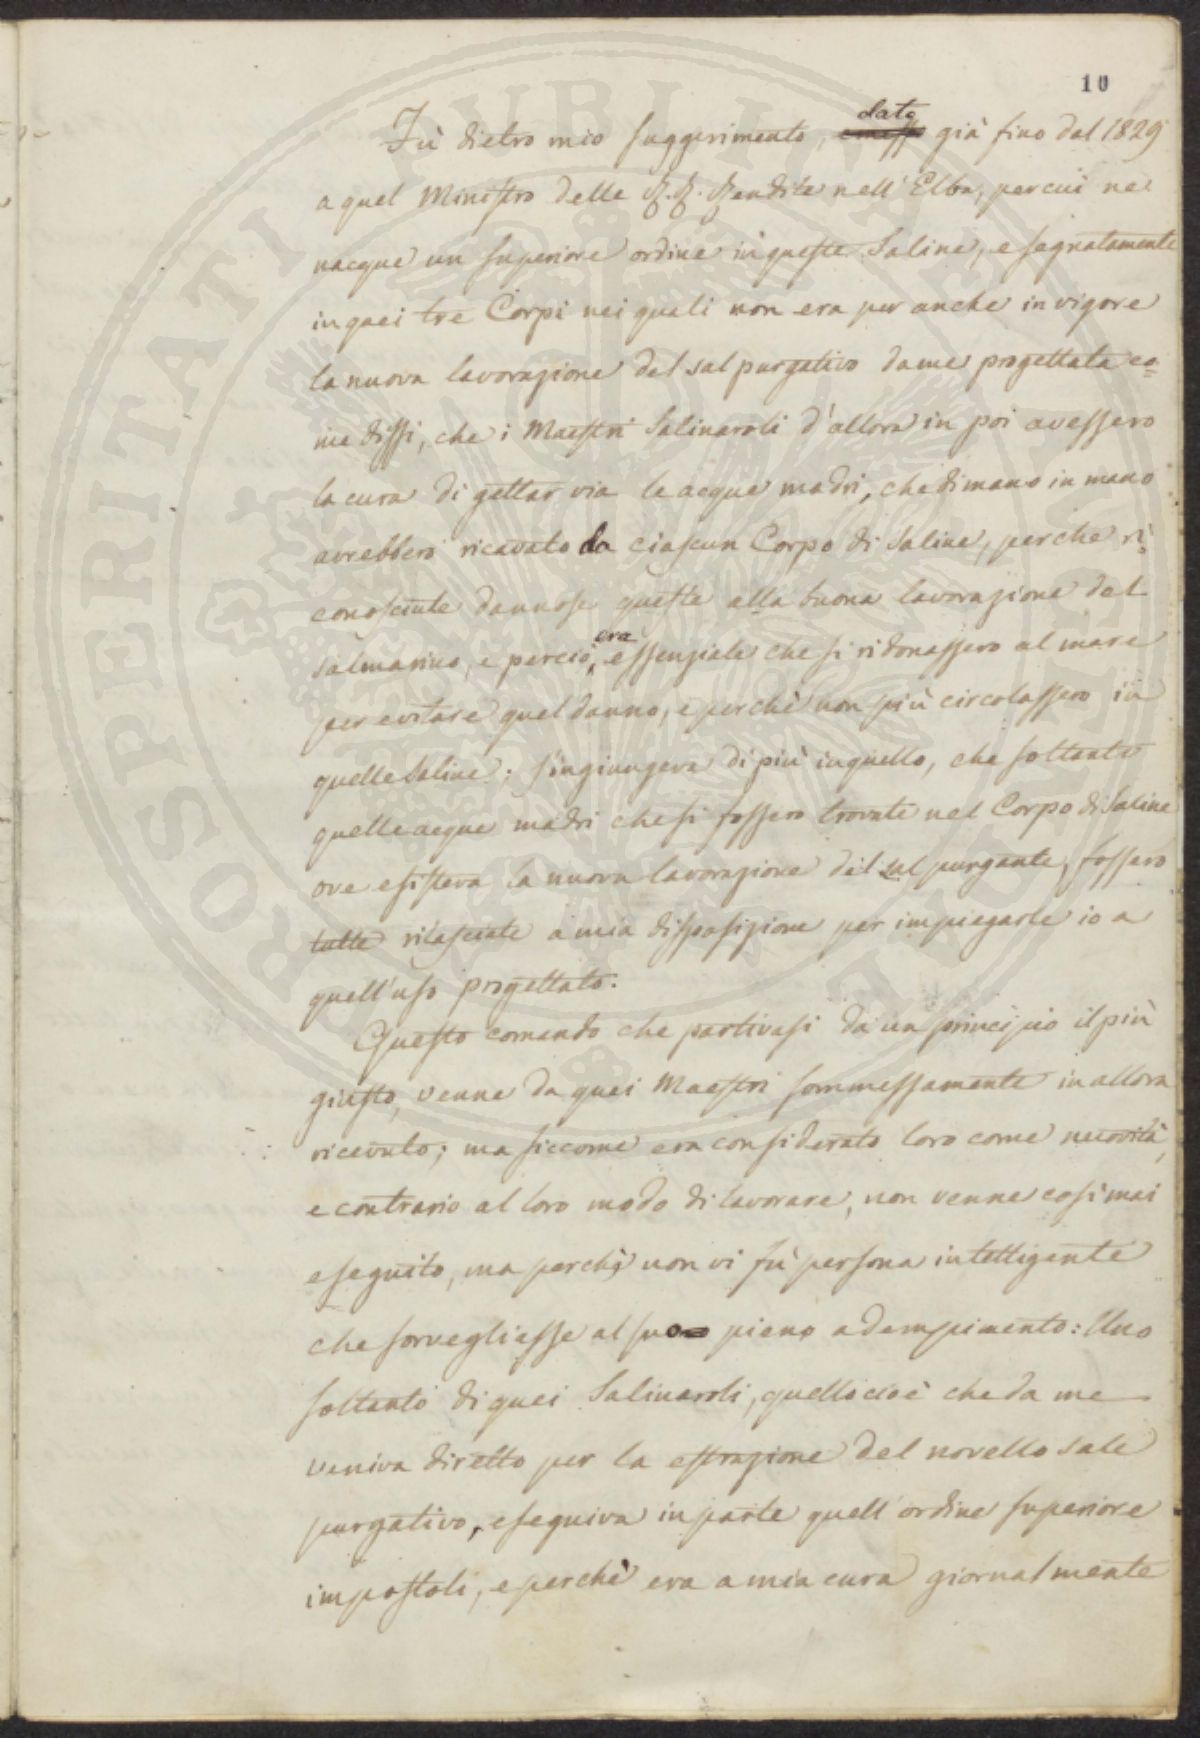 10
Fù dietro mio suggerimento, dato già fino dal 1829
a quel Ministro delle R. R. Rendite nell'Elba, percui ne
nacque un superiore ordine in queste Saline, e segnatamente
in quei tre Corpi nei quali non era per anche in vigore
la nuova lavorazione del sal purgativo da me progettata co=
me dissi, che i Maestri Salinaroli d'allora in poi avessero
la cura di gettar via le acque madri, che di mano in mano
avrebbero ricavato da ciascun Corpo di Saline, perche ri=
conosciute dannose queste alla buona lavorazione del
sal marino, e perciò era essenziale che si ridonassero al mare
per evitare quel danno, e perchè non più circolassero in
quelle Saline: s'ingiungeva di più in quello, che soltanto
quelle acque madri che si fossero trovate nel Corpo di Saline
ove esisteva la nuova lavorazione del sal purgante, fossero
tutte rilasciate a mia disposizione per impiegarle io a
quell'uso progettato.
Questo comando che partivasi da un principio il più
giusto, venne da quei Maestri sommessamente in allora
ricevuto; ma siccome era considerato loro come nuovità,
e contrario al loro modo di lavorare, non venne così mai
eseguito, ma perchè non vi fù persona intelligente
che sorvegliasse al suo pieno adempimento: Uno
soltanto di quei Salinaroli, quello cioè che da me
veniva diretto per la estrazione del novello sale
purgativo, eseguiva in parte quell'ordine superiore
impostoli, e perchè era a mia cura giornalmente
PROSPERITATI PUBLICAE AUGENDAE